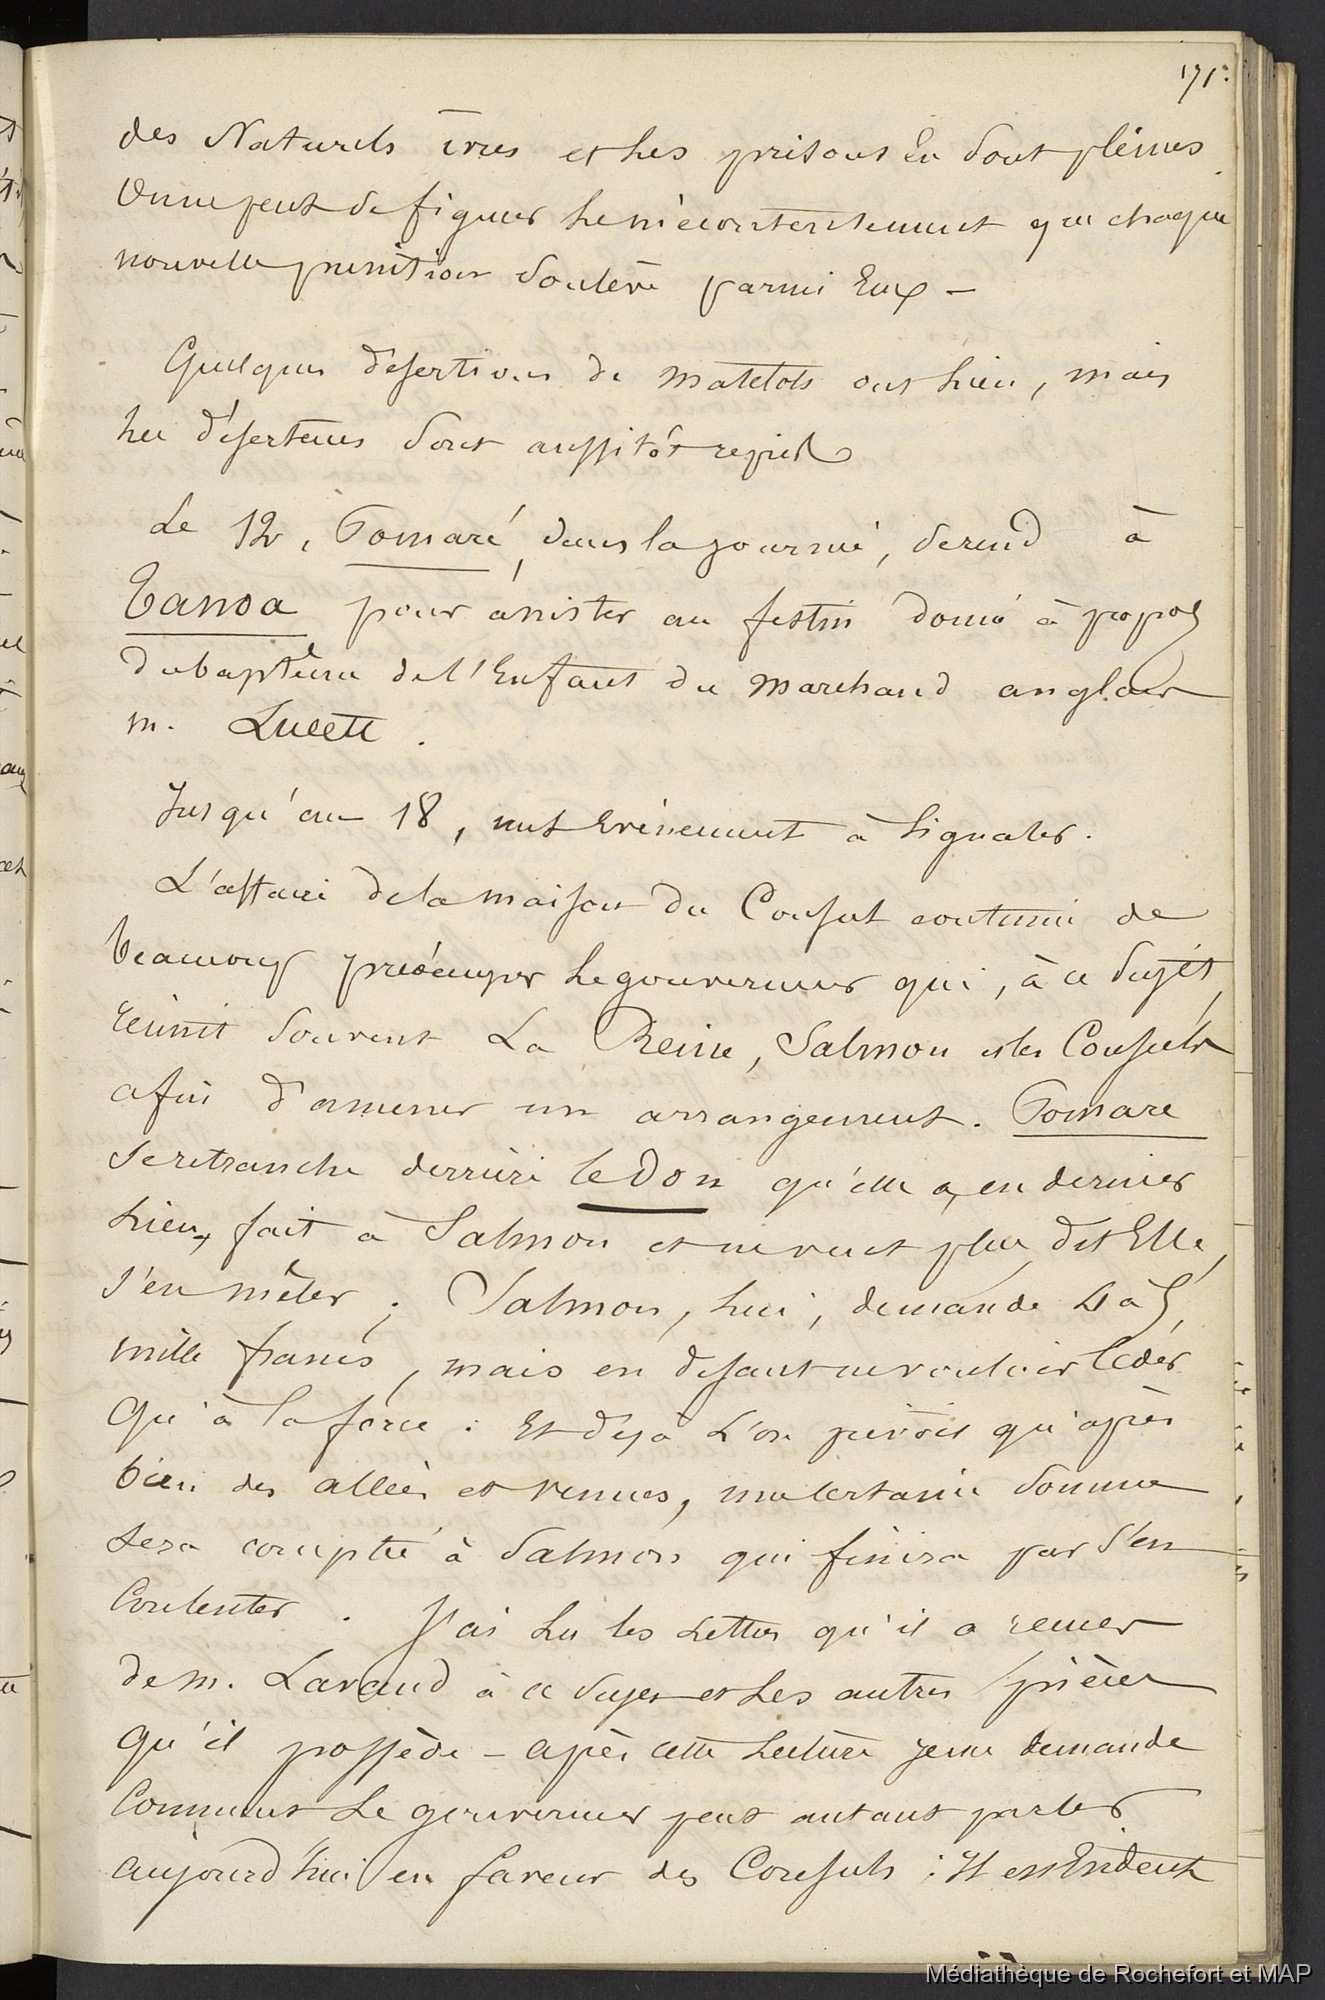 171.
des Naturels ivres et les prisons en sont pleines.
On ne peut se figurer le mécontentement que chaque
nouvelle punition soulève parmi Eux —
Quelques désertions de matelots ont lieu, mais
les déserteurs sont aussitôt repris
Le 12, Pomaré, dans la journée, se rend à
Tanoa pour assister au festin donné à propos
du baptême de l'Enfant du Marchand anglais
M. Lucett.
Jusqu'au 18, nul Evènement à signaler.
L'affaire de la maison du Consul continue de
beaucoup préoccuper le gouverneur qui, à ce sujet,
réunit souvent La Reine, Salmon et les Consuls
afin d'amener un arrangement. Pomare
se retranche derrière le Don qu'elle a, en dernier
lieu, fait à Salmon et ne veut plus, dit Elle,
s'en mêler; Salmon, lui, demande 4 à 5
mille francs, mais en disant ne vouloir céder
qu'à la force : Et déjà L'on prévoit qu'après
bien des allées et venues, une certaine somme
sera comptée à Salmon qui finira par s'en
Contenter. J'ai lu les Lettres qu'il a reçues
de M. Lavaud à ce sujet et les autres pièces
qu'il possède — après cette lecture je me demande
Comment le gouverneur peut autant parler
aujourd'hui en faveur des Consuls : Il est Evident
Médiathèque de Rochefort et MAP